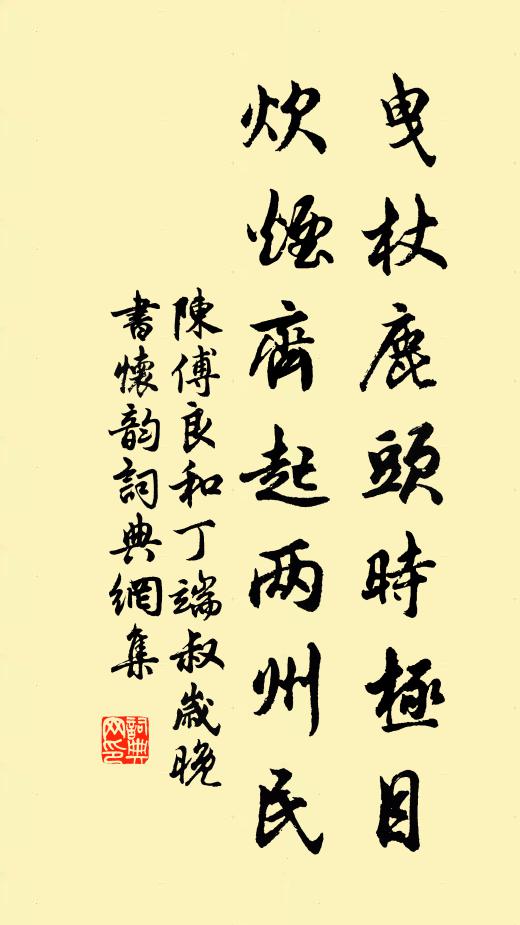 曳杖鹿頭時極目
炊煙齊起两州民
陳傅良和丁端叔歲晚
書懷韵詞典網集
詞典
网印